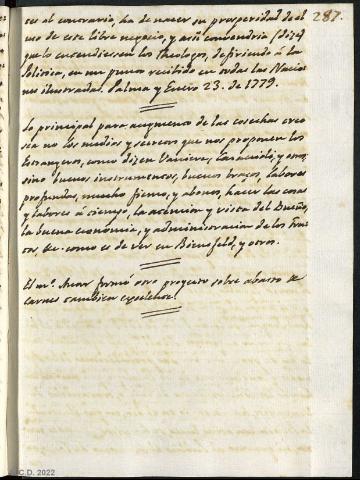 287.
ces al contrario, ha de nacer su prosperidad del
uso de este libre negocio, y assi convendria (dize)
que lo entendiessen los Theologos, defiriendo á la
Politica, en un punto recibido en todas las Nacio
nes ilustradas. Palma y Enero 23. de 1779.
Lo principal para augmento de las cosechas creo
sea no los medios y secretos que nos proponen los
Estrangeros, como dizen Vaniere, y otros,
sino buenos instrumentos, buenos brazos, labores
profundas, mucho fiemo, y abono, hacer las cosas
y labores á tiempo, la atencion y vista del Dueño,
la buena economia, y administracion de los fru
tos, &c. como es de ver en Bienfeld, y otros.
El mº. formó otro proyecto sobre abasto de
carnes tambien excelente.
C.D. 2022